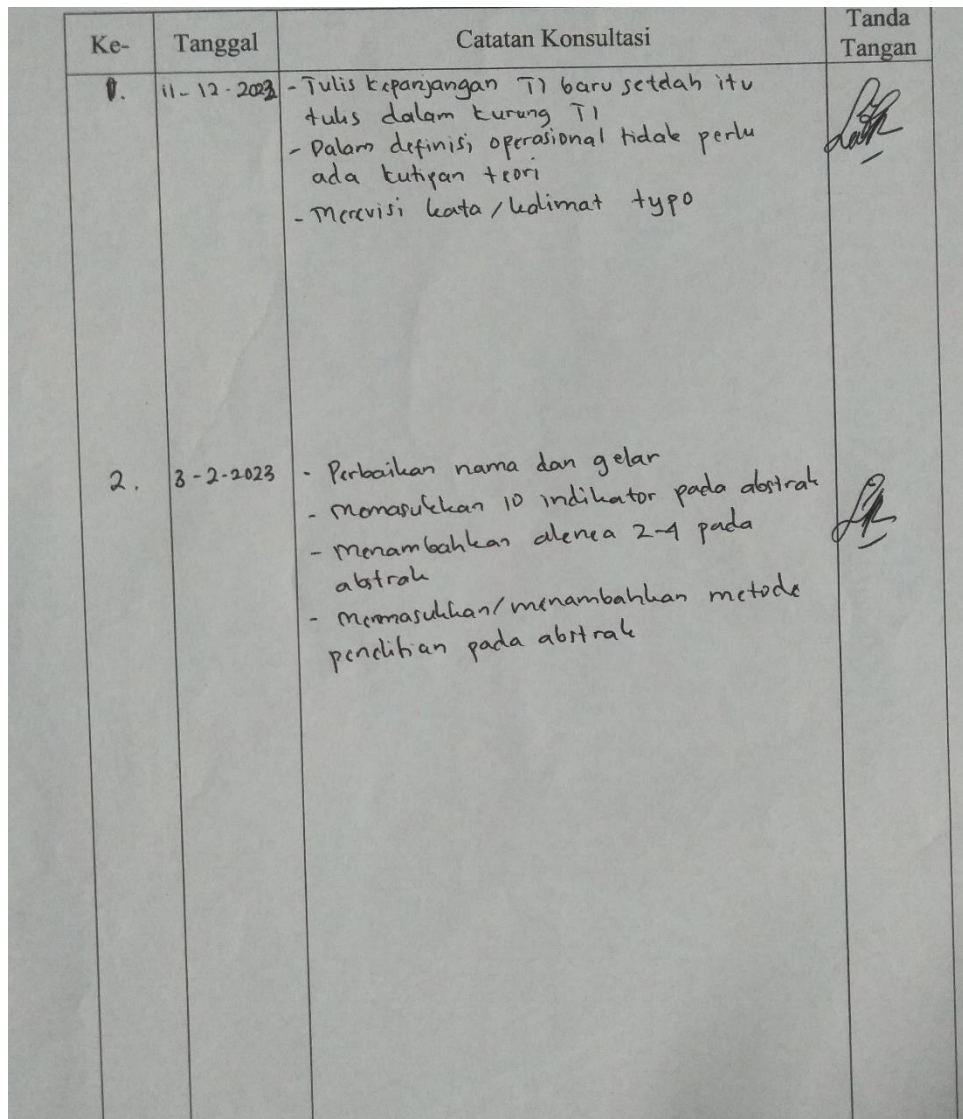 Ke- Tanggal Catatan Konsultasi Tanda Tangan
1. 11-12-2023 - Tulis kepanjangan TI baru setelah itu
tulis dalam kurung TI
- Dalam definisi operasional tidak perlu
ada kutipan teori
- Merevisi kata/kalimat typo
2. 3-2-2023 - Perbaikan nama dan gelar
- Memasukkan 10 indikator pada abstrak
- Menambahkan alenea 2-4 pada
abstrak
- Memmasukkan/menambahkan metode
penelitian pada abstrak